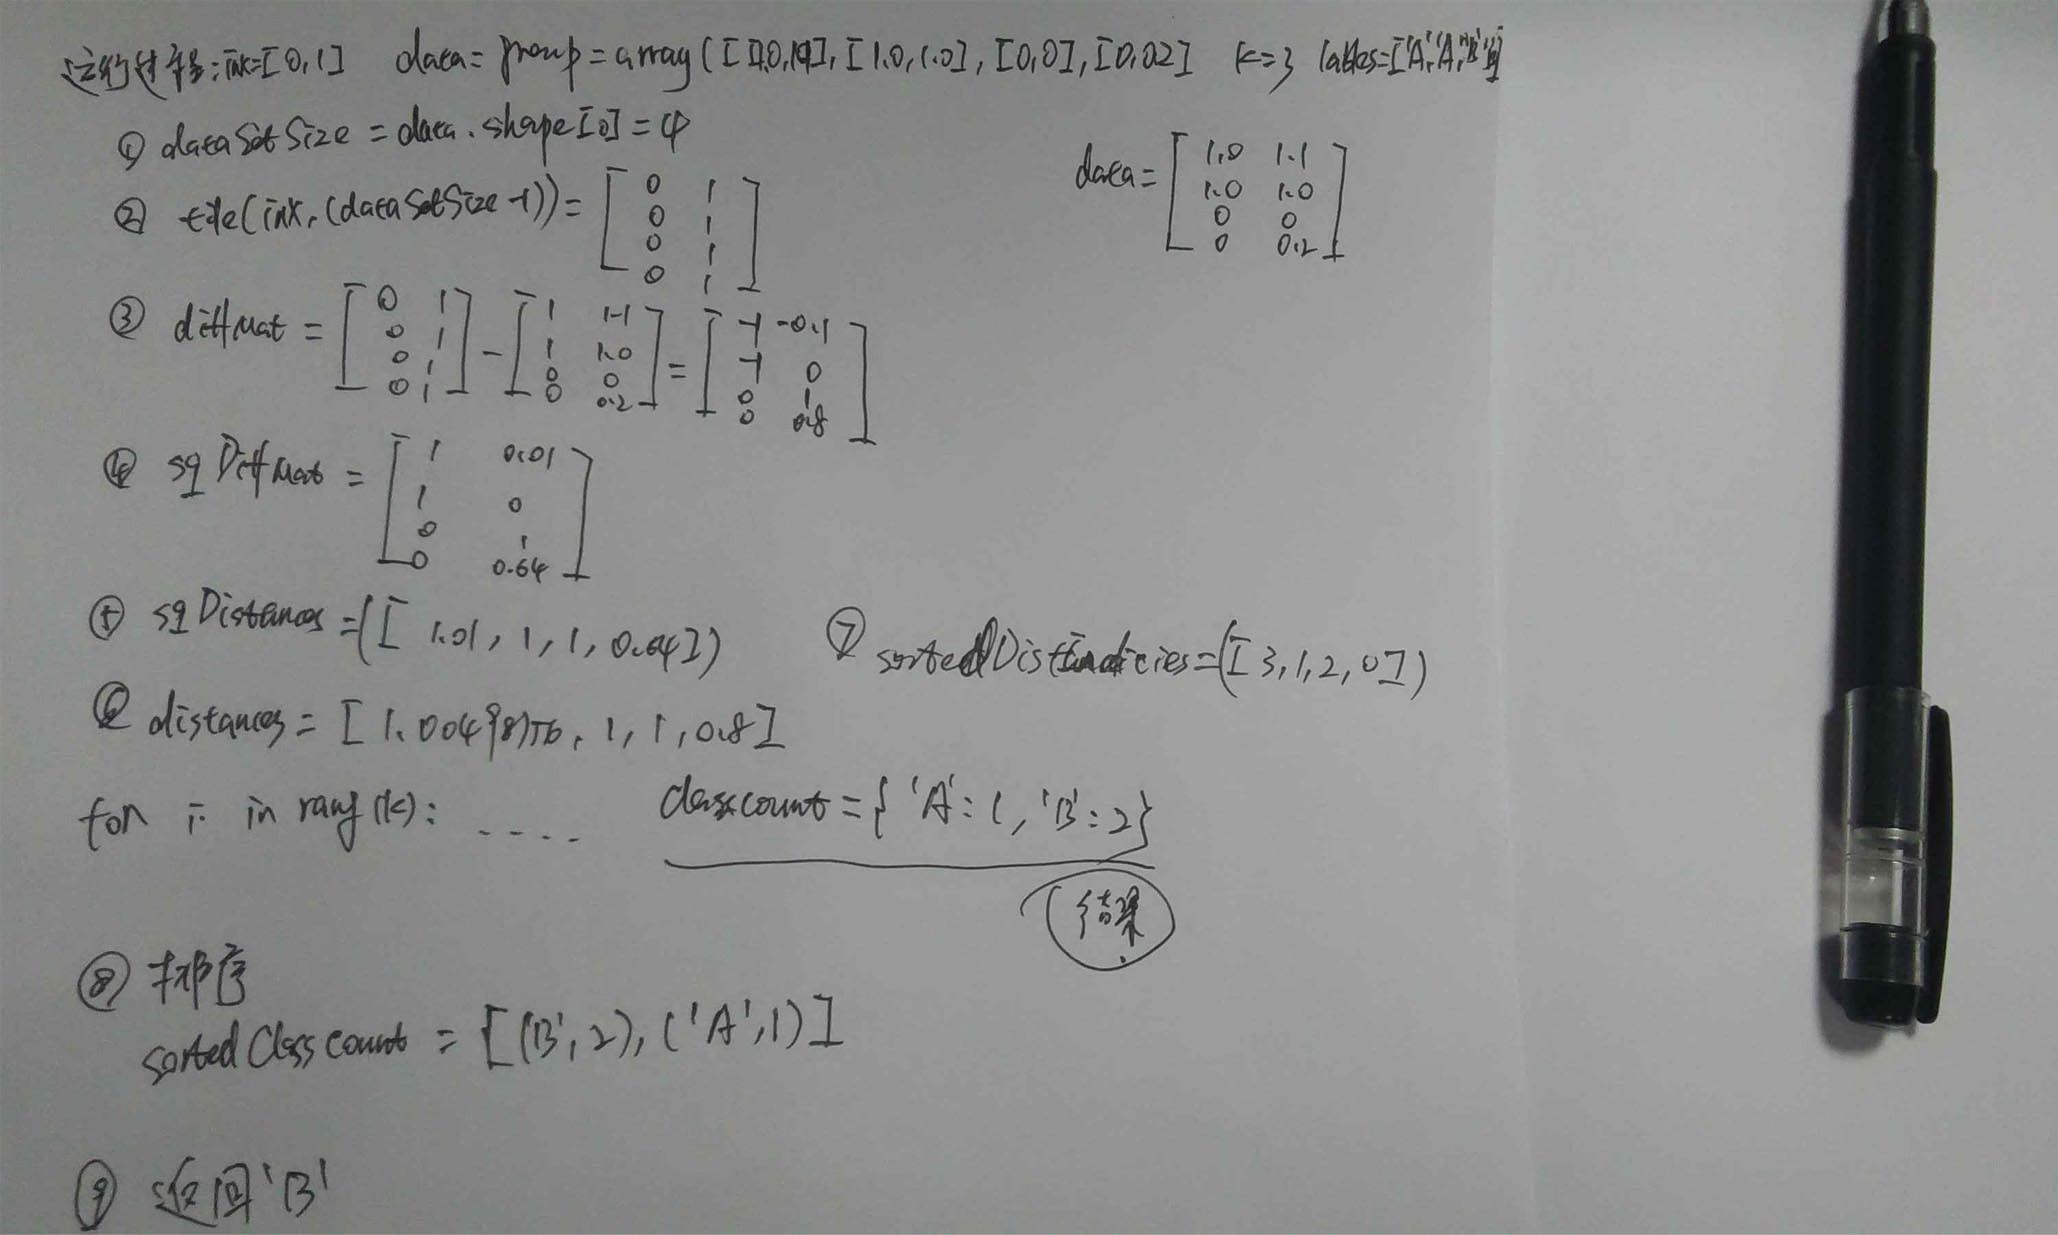 运行过程: inX=[0,1] data=group=array([[1.0,1.1],[1.0,1.0],[0,0],[0,0.2] k=3 lables=['A','A','B','B']
① dataSetSize = data.shape[0]=4
② tile(inX,(dataSetSize-1))=
0 1
0 1
0 1
0 1
data=
1.0 1.1
1.0 1.0
0 0
0 0.2
③ diffMat =
0 1 - 1 1.1 = -1 -0.1
0 1 1 1.0 -1 0
0 1 0 0 0 1
0 1 0 0.2 0 0.8
④ sqDiffMat =
1 0.01
1 0
0 1
0 0.64
⑤ sqDistances=([ 1.01, 1, 1, 0.64])
⑦ sortedDistIndicies=([3,1,2,0])
⑥ distances= [1.00498756, 1, 1, 0.8]
for i in rang(k): ....
classcount={'A':1,'B':2}
结果
⑧ 排序
sortedClasscount = [('B',2),('A',1)]
⑨ 返回'B'